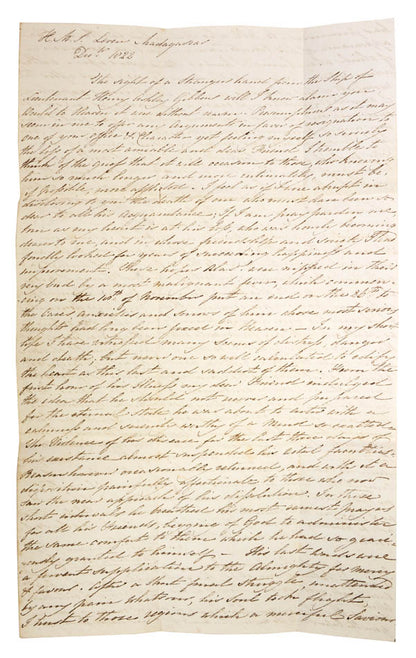 H. M. S. Leven Madagascar
Decr 1822
The sight of a Strangers hand from the Ship of
Lieutenant Henry Ashley Gibbons will I know alarm you
would to Heaven it was without cause.
one of your office &
the life of a most amiable and dear
think of the grief that it will occasion to those, who knowing
him so much longer and more intimately, must be
if possible more afflicted. I feel as if I am abrupt in
disclosing to you the death of one who must have been so
dear to all his acquaintance; if I am pray pardon me
me as my heart is at his
to me, and in whose friendship and society I had
fondly looked for years of succeeding happiness and
improvement. These hopes Alas! are nipped in their
very bud by a most malignant fever, which commen
cing on the 10th of November put an end on the 26th to
the cares anxieties and sorrows of him whose
thoughts had long been placed in Heaven — In my short
life I have witnessed many scenes of distress, danger
and death, but never one so well calculated to edify
the heart as this last and saddest of them. Upon the
first hour of his Illness my dear Friend indulged
the idea that he should not recover and prepared
for the eternal state he was about to enter with a
calmness and serenity worthy of a Mind so
The Violence of the disease for the last three days of
his existence almost suspended his vital faculties.
Reason however measurably returned, and with it a
disposition painfully affectionate to those who now
saw the near approach of his dissolution. In these
short intervals he breathed his most earnest prayers
for all his friends, begging of God to administer
the same comfort to them which he had so graci
ously granted to himself — His last words were
a fervent supplication to the Almighty for mercy
& pardon. After a short final struggle unattended
by any pain whatever, his Soul took its flight
I trust to those regions which a merciful Saviour